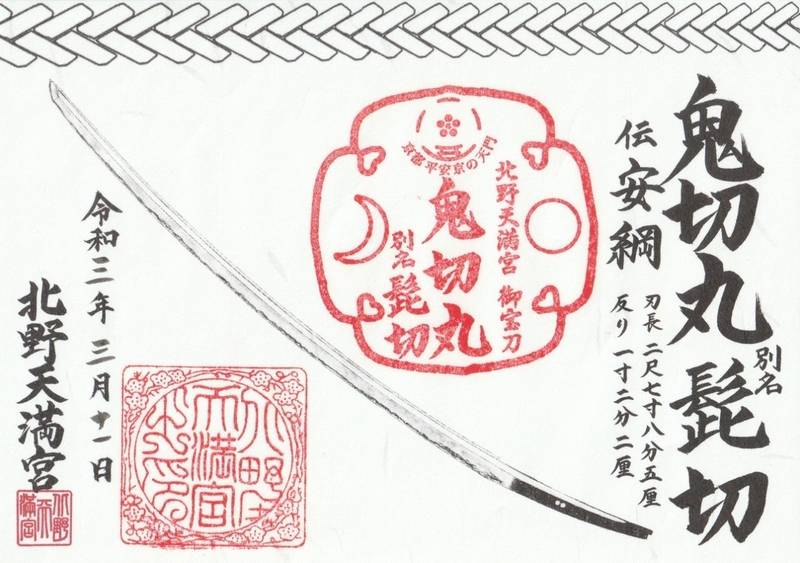 鬼切丸 別名 髭切
伝 安綱
刃長 二尺七寸八分五厘
反り 一寸二分二厘
京都平安京の天門
北野天満宮 御宝刀
鬼切丸
別名 髭切
令和三年 三月十一日
北野天満宮
北野
天満宮
之印
北野
天
満宮